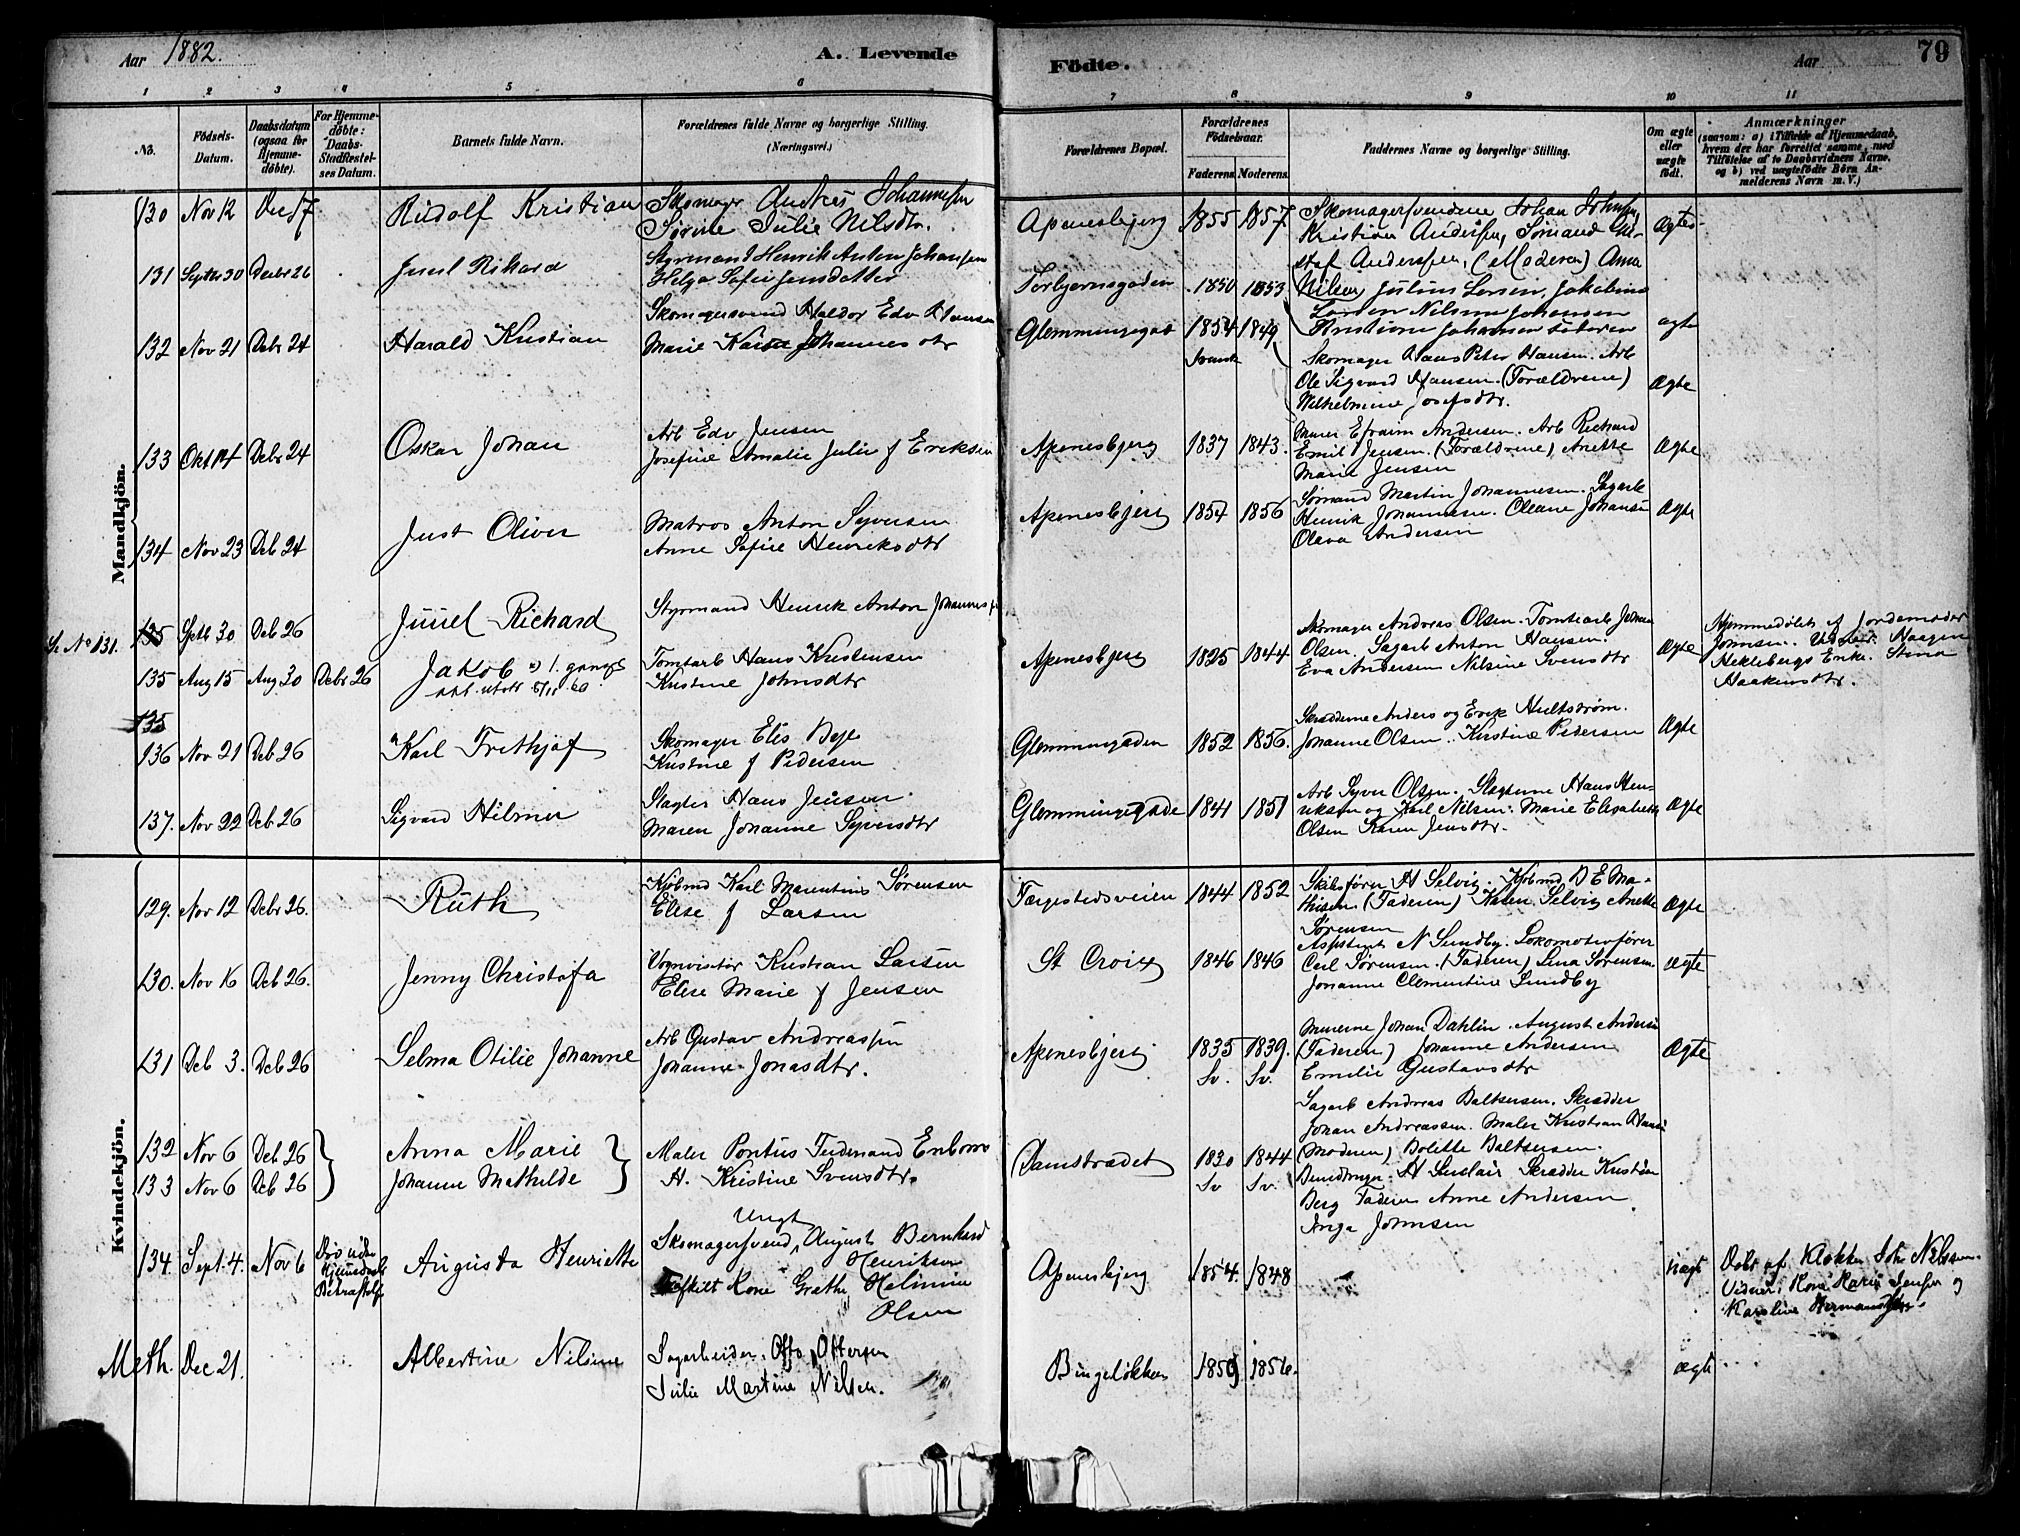 Aar 1882.
A. Levende
Födte.
Aar
79
1 2 3 4 5 6 7 8 9 10 11
No.
Födsels-Datum.
Daabsdatum (ogsaa for Hjemmedöbte).
For Hjemmedöbte: Daabs-Stadfæstelses Datum.
Barnets fulde Navn.
Forældrenes fulde Navne og borgerlige Stilling.
(Næringsvei.)
Forældrenes Bopæl.
Forældrenes Födselsaar.
Faderens Moderens
Faddernes Navne og borgerlige Stilling.
Om ægte eller uægte födt.
Anmærkninger
(saasom: a) i Tilfælde af Hjemmedaab, hvem der har forrettet samme, med Tilföielse af to Daabsvidners Navne, og b) ved uægtefödte Börn Anmelderens Navn m. V.)
Mandkjön.
130 Nov 12 Rudolf Kristian
Skomager Andreas Johannesen
Sørine Julie Nilsdtr.
Apenesbjerg 1855 1857
Skomagersvendene Johan Johnsen,
Kristian Andersen, Sømand
Andersen, (Moderen) Anna
Nilsen
Ægte
131 Septbr 30 Decbr 26 Juul Rikard
Styrmand Henrik Anton Johansen
Helga Sofie Jensdatter
Torbjørnsgaden 1850 1853
Julius Larsen, Jakobine
Larsen Nilsine Johansen
ægte
132 Nov 21 Debr 24 Harald Kristian
Skomagersvend Haldor Edv Hansen
Marie Johannesdtr
Glemmingegad 1854 1849
Svensk
Skomager Hans Peter Hansen. Arb
Ole Sigvard Hansen. (Forældrene)
Wilhelmine Josefsdtr.
Ægte
133 Okt 14 Debr 24 Oskar Johan
Arb Edv Jensen
Josefine Amalie Julie f Eriksen
Apenesbjerg 1837 1843.
Murer Efraim Andersen. Arb Richard
Emil Jensen. (Forældrene) Anette
Marie Jensen
Ægte
134 Nov 23 Deb 24 Just Oliver
Matros Anton Syversen
Anne Sofie Henriksdtr
Apenesbjerg 1854 1856
Sømand Martin Johannesen. Sagarb
Henrik Johannesen. Oleane Johansen
Oleva Andersen
Ægte
Se No 131. 135 Sptb 30 Deb 26 Juuel Richard
Styrmand Henrik Anton Johannes
135 Aug 15 Aug 30 Debr 26 Jakob
Tomtarb Hans Kristensen
Kristine Johnsdtr
Apenesbjerg 1825 1844
Skomager Andreas Olsen. Tomtearb Johan
Olsen. Sagarb Anton Hansen.
Eva Andersen Nilsine Svensdtr
Ægte
Hjemmedøbt af Jordemoder
Johnsen. Haagen
Heklebergs Enke. Stina
Haakensdtr.
135
136 Nov 21 Deb 26 Karl Frithjof
Skomager Elis Beje
Kristine f Pedersen
Glemmingaden 1852 1856.
Skrædderne Anders og Erik Hultstrøm.
Johanne Olsen. Kristine Pedersen
Ægte
137. Nov 22 Deb. 26 Sigvard Hilmer
Slagter Hans Jensen
Maren Johanne Syversdtr
Glemmingegade 1841 1851
Arb Syver Olsen. Slagterne Hans Hen-
riksen og Karl Nilsen. Marie Elisabeth
Olsen Karen Jensdtr.
Ægte
Kvindekjön.
129. Nov 12 Debr 26. Ruth
Kjøbmd Karl Marentius Sørensen
Elise f Larsen
Færgestedsveien 1844 1852
Skibsfører H Selvig. Kjøbmd D E Ma-
thisen (Faderen) Karen Selvig Anette
Sørensen
Ægte
130. Nov 16 Deb 26. Jenny Christofa
Vognvisitør Kristian Larsen
Elise Marie f Jensen
St Croix 1846 1846
Assistent N Sundby. Lokomotivfører
Carl Sørensen. (Faderen) Lina Sørensen.
Johanne Clementine Sundby
Ægte
131 Deb 3. Deb 26 Selma Otilie Johanne
Arb Gustav Andreassen
Johanne Jonasdtr.
Apenesbjerg 1835 1839.
Sv. Sv.
Murerne Johan Dahlin. August Andersen
(Faderen) Johanne Andersen
Emilie Gustavsdtr
Ægte
132 Nov 6 Deb 26 Anna Marie
133 Nov 6 Deb 26 Johanne Mathilde
Maler Pontus Ferdinand Enbom
H. Kristine Svensdtr.
Damstrædet 1830 1844
Sv Sv.
Sagarb Andreas Baltsersen. Skrædder
Johan Andreassen. Maler Kristian Hansen
(Moderen) Bolette Baltsersen.
H Sinclair Skrædder Kristian
Berg Faderen Anne Andersen
Inga Johnsen
134. Sept. 4. Nov 6 Augusta Henriette
Ungk
Skomagersvend August Bernhard
Henriksen
Fraskilt Kone Grethe Helmine
Olsen
Apenesbjerg 1854. 1848
uægt
Døbt af Klokker Joh Nilssen.
Vidner: Kone Karen Jensen og
Karoline Hermansen.
Meth. Dec 21. Albertine Nilsine
Sagarbeider. Otto Ottersen
Julie Martine Nilsen.
Bingeløkken 1859 1856.
ægte